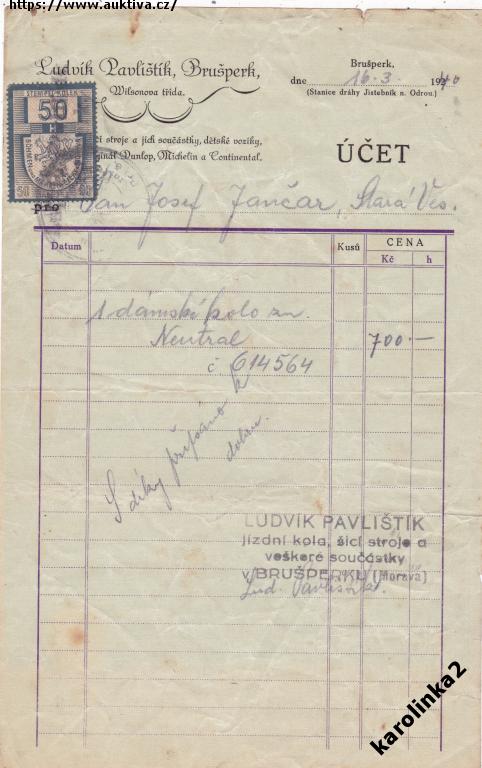 https://www.auktiva.cz/
Ludvík Pavlištík, Brušperk,
Wilsonova třída.
Brušperk,
dne 16.3. 1940
(Stanice dráhy Jistebník n. Odrou.)
cí stroje a jich součástky, dětské vozíky,
ginál Dunlop, Michelin a Continental.
ÚČET
50
50
pro Pan Josef Jančar, Stará Ves.
Datum
Kusů
CENA
Kč
h
1 dámské kolo zn.
Neutral
700.—
č 614564
S díky připsáno k
dobru.
LUDVÍK PAVLIŠTÍK
jízdní kola, šicí stroje a
veškeré součástky
v BRUŠPERKU (Morava)
Lud. Pavlištík.
karolinka2